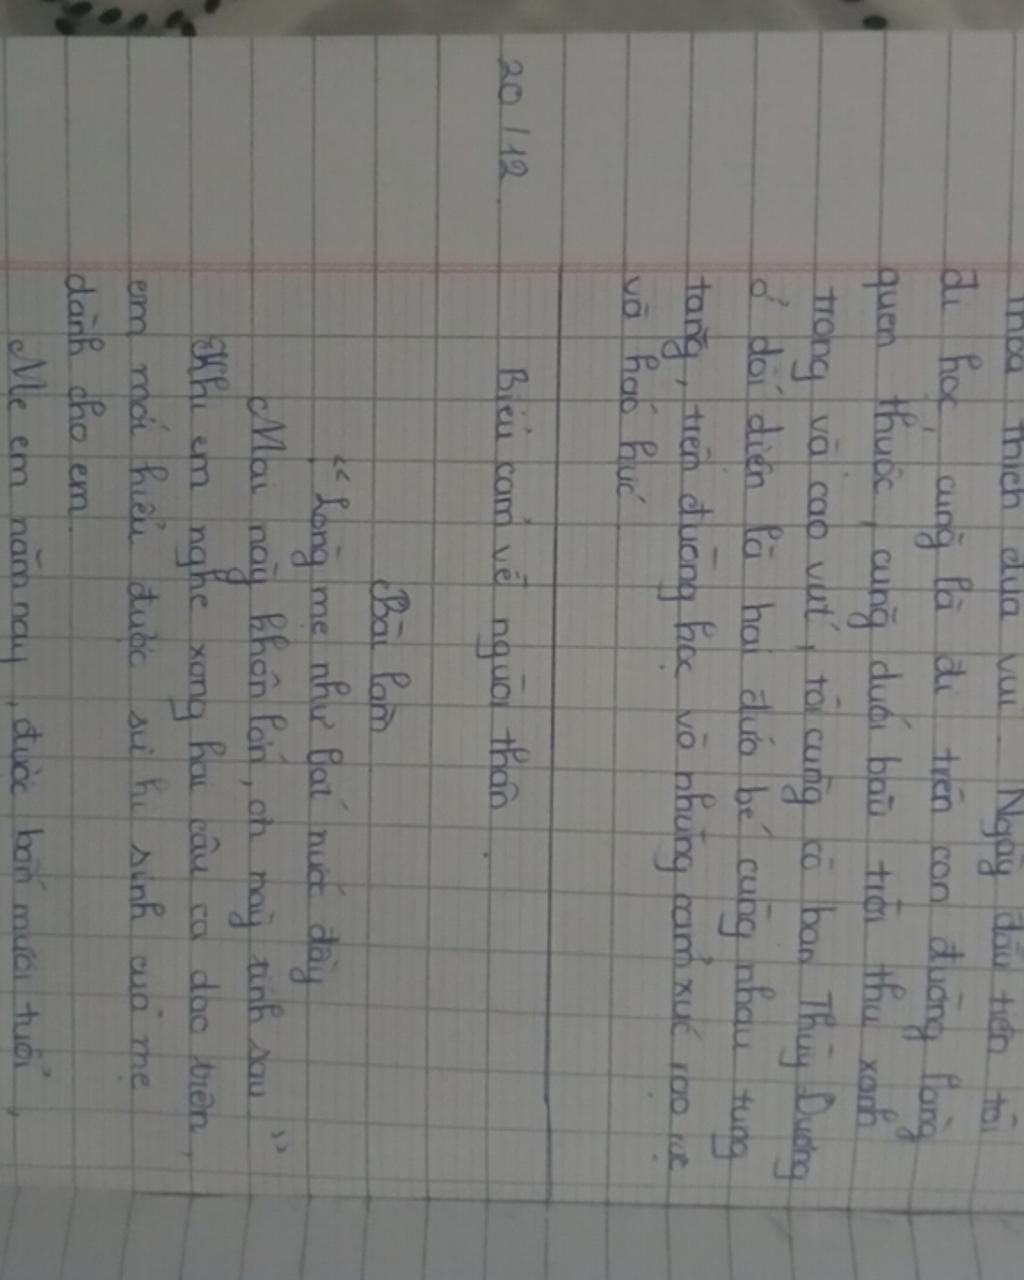 thích đùa vui. Ngày đầu tiên tôi
đi học, cũng là đi trên con đường làng
quen thuộc, cũng dưới bầu trời thu xanh
trong và cao vút, tôi cùng cô bạn Thùy Dương
ở đối diện là hai đứa bé cùng nhau tung
tăng, trên đường học và những cảm xúc rạo rực
và háo hức
20/12
Biểu cảm về người thân.
Bài làm
“ Lòng mẹ như lai nước đầy
Mai này khôn lớn, ơn này tính sau ”
Khi em nghe xong hai câu ca dao trên,
em mới hiểu được sự hi sinh của mẹ
dành cho em.
Mẹ em năm nay, được bốn mươi tuổi,